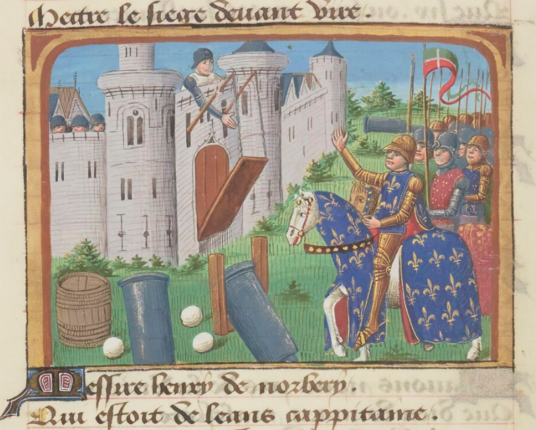 Mectre le siege devant vire.
Messire henry de norbery.
Qui estoit de leans cappitaine.